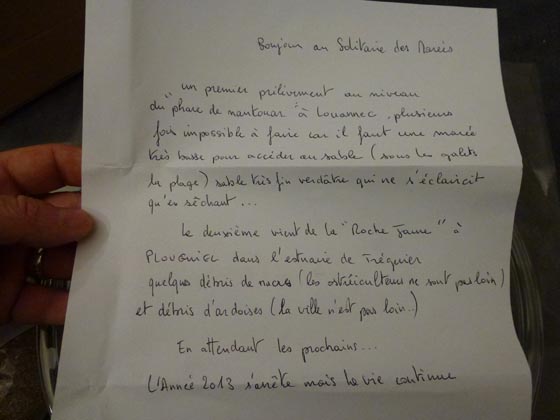 Bonjour au Solitaire des Marées
un premier prélèvement au niveau
du "phare de nantouar" à Louannec, plusieurs
fois impossible à faire car il faut une marée
très basse pour accéder au sable (sous les galets
la plage) sable très fin verdâtre qui ne s'éclaircit
qu'en séchant...
Le deuxième vient de la "Roche Jaune" à
PLOUGUIEL dans l'estuaire de Tréguier
quelques débris de nacres (les ostréiculteurs ne sont pas loin)
et débris d'ardoises (la ville n'est pas loin..)
En attendant les prochains...
L'Année 2013 s'arrête mais la vie continue